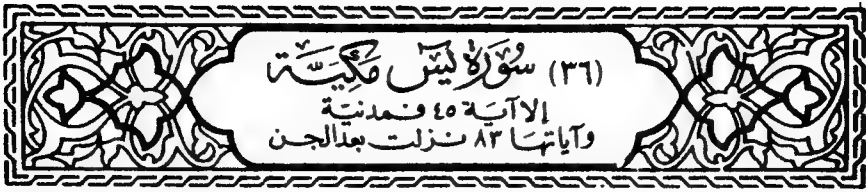 (٣٦) سورة يس مكية
إلا آية ٤٥ فمدنية
وآياتها ٨٣ نزلت بعد الجن